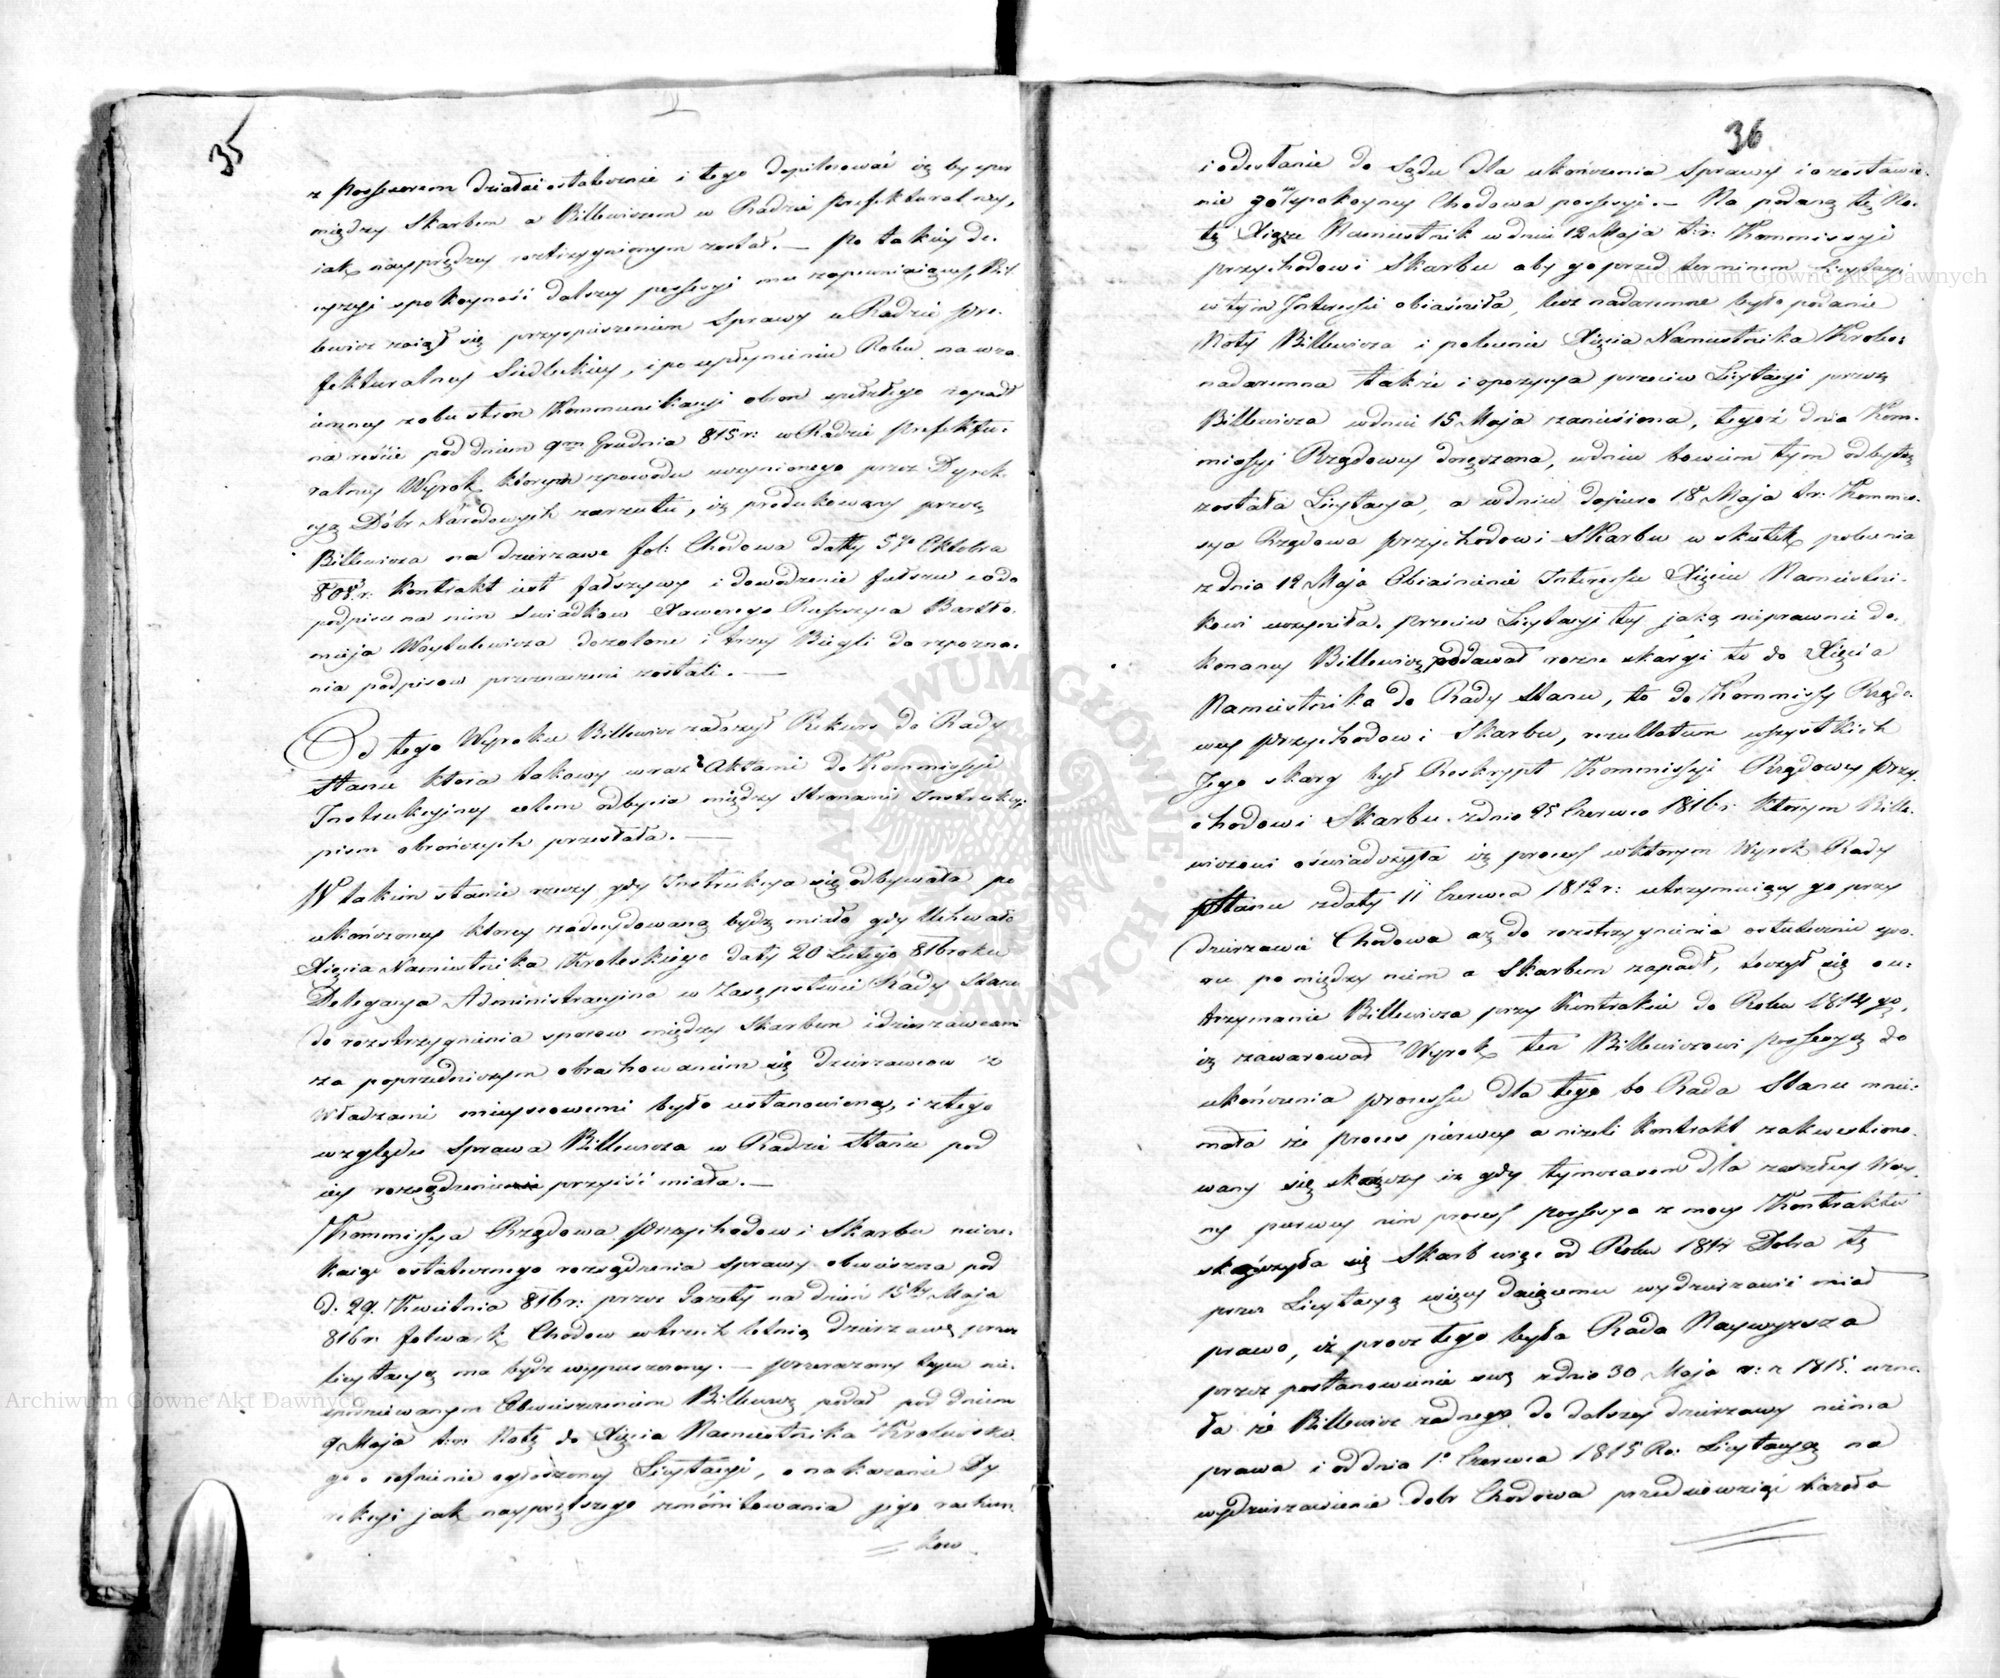 35
z Possessorem działać ostatecznie i tego dopilnować iż by spor
między Skarbem a Billewiczem w Radzie Prefekturalney,
iak nayprędzey roztrzygnionym został. — Po takiey de-
cyzyi spokoyność dalszey possesyi mu zapewniaiącey, Bil-
lewicz zaiął się przyspieszeniem Sprawy w Radzie Pre-
fekturalney Siedleckiey, i po upłynieniu Roku na wza-
iemney z obu stron Kommunikacyi obron spełzłego zapadł
na reście pod dniem 9m Grudnia 815 r: w Radzie Prefektu-
ralney Wyrok, którym z powodu uczynionego przez Dyrek-
cyą Dóbr Narodowych zarzutu, iż produkowany przez
Billewicza na dzierzawe fol: Chodowa datty 5go Oktobra
808. r: Kontrakt iest fałszywy i dowodzenie fałszu co do
podpisu na nim swiadkow Xawerego Ruszczyca Bartło-
mieja Woytulewicza dozwolone i trzey Biegli do rozpozna-
nia podpisow przeznaczeni zostali. —
Od tego Wyroku Billewicz założył Rekurs do Rady
Stanu ktora takowy wraz z Aktami do Kommissyi
Instrukcyiney celem odbycia między Stronami Instrukcyi
pism obrończych przesłała. —
W takim stanie rzeczy gdy Instrukcya się odbywała po
ukończoney ktorey zadecydowaną bydź miało gdy Uchwałą
Xięcia Namiestnika Krolewskiego daty 20 Lutego 816 roku
Delegacya Administracyina w Zasępstwie Rady Stanu
do rozstrzygnienia sporow między Skarbem i dzierzawcami
za poprzedniczym obrachowaniem się dzierzawcow z
Władzami mieyscowemi było ustanowioną, i z tego
względu Sprawa Billewicza w Radzie Stanu pod
iey rozsądzenie przyiść miała. —
Kommissya Rządowa Przychodow i Skarbu nieocze-
kaiąc ostatecznego rozsądzenia sprawy obwieszcza pod
d. 29. Kwietnia 816 r: przez Gazety na dzień 15ty Maja
816 r. folwark Chodow w trzech letnią dzierzawę przez
licytacyą ma bydź wypuszczony. — Przerażony tym nie-
spodziewanym Obwieszczeniem Billewicz podał pod dniem
9 Maja t. r. Notę do Xięcia Namiestnika Krolewskie-
go o cofnienie ogłoszoney Licytacyi, o nakazanie Dy
rekcyi jak nayprętszego zmónitowania jego rachun-
kow

36
i odesłanie do Sądu dla ukończenia Sprawy i o zostawie-
nie go w spokoyney Chodowa possesyi. — Na podaną tę No-
tę Xiąże Namiestnik w dniu 12 Maja t. r: Kommissyi
Przychodow i Skarbu aby go przed terminem Licytacyi
w tym Interessie obiaśniła, lecz nadaremne było podanie
Noty Billewicza i polecenie Xięcia Namiestnika Krolew:
nadaremna także i opozycya przeciw Licytacyi przez
Billewicza w dniu 15 Maja zaniesiona, tegoż dnia Kom-
missyi Rządowey doręczona, w dniu bowiem tym odbytą
została Licytacya, a w dniu dopiero 18 Maja t. r: Kommis-
sya Rządowa Przychodow i Skarbu w skutek polecenia
z dnia 12 Maja Obiaśnienie Interessu Xięciu Namiestni-
kowi uczyniła. Przeciw Licytacyi tey jako nieprawnie do-
konaney Billewicz, poddawał rozne skargi to do Xięcia
Namiestnika do Rady Stanu, to do Kommissyi Rządo-
wey Przychodow i Skarbu, rezultatem wszystkich
Jego skarg był Reskrypt Kommissyi Rządowey Przy-
chodow i Skarbu. z dnia 25 Czerwca 1816 r. Ktorym Bille-
wiczowi oświadczyła iż process w ktorym Wyrok Rady
Stanu z daty 11 Czerwca 1812 r: utrzymuiący go przy
dzierzawie Chodowa aż do rozstrzygnienia ostatecznie spo-
ru pomiędzy nim a Skarbem zapadł, toczył się o u-
trzymanie Billewicza przy Kontrakcie do Roku 1814 go,
iż zawarował Wyrok ten Billewiczowi possesyą do
ukończenia processu dla tego bo Rada Stanu mnie-
mała że Proces pierwey anizeli Kontrakt zakwestiono-
wany się skończy iż gdy tymczasem dla zaszłey Woy-
ny pierwey nim process possesya z mocy Kontraktu
skończyła się Skarb więc od Roku 1814 Dobra te
przez Licytacyą więcey daiącemu wydzierzawić miał
prawo, iż procz tego była Rada Naywyzsza
przez postanowienie swe z dnia 30 Maja r: z 1815. uzna-
ła że Billewicz zadnego do dalszey dzierzawy niema
prawa i od dnia 1o Czerwca 1815 Ro: Licytacyą na
wydzierzawienie dobr Chodowa przedsiewziąć kazała
Archiwum Główne Akt Dawnych
Archiwum Główne Akt Dawnych
ARCHIWUM GŁÓWNE AKT DAWNYCH